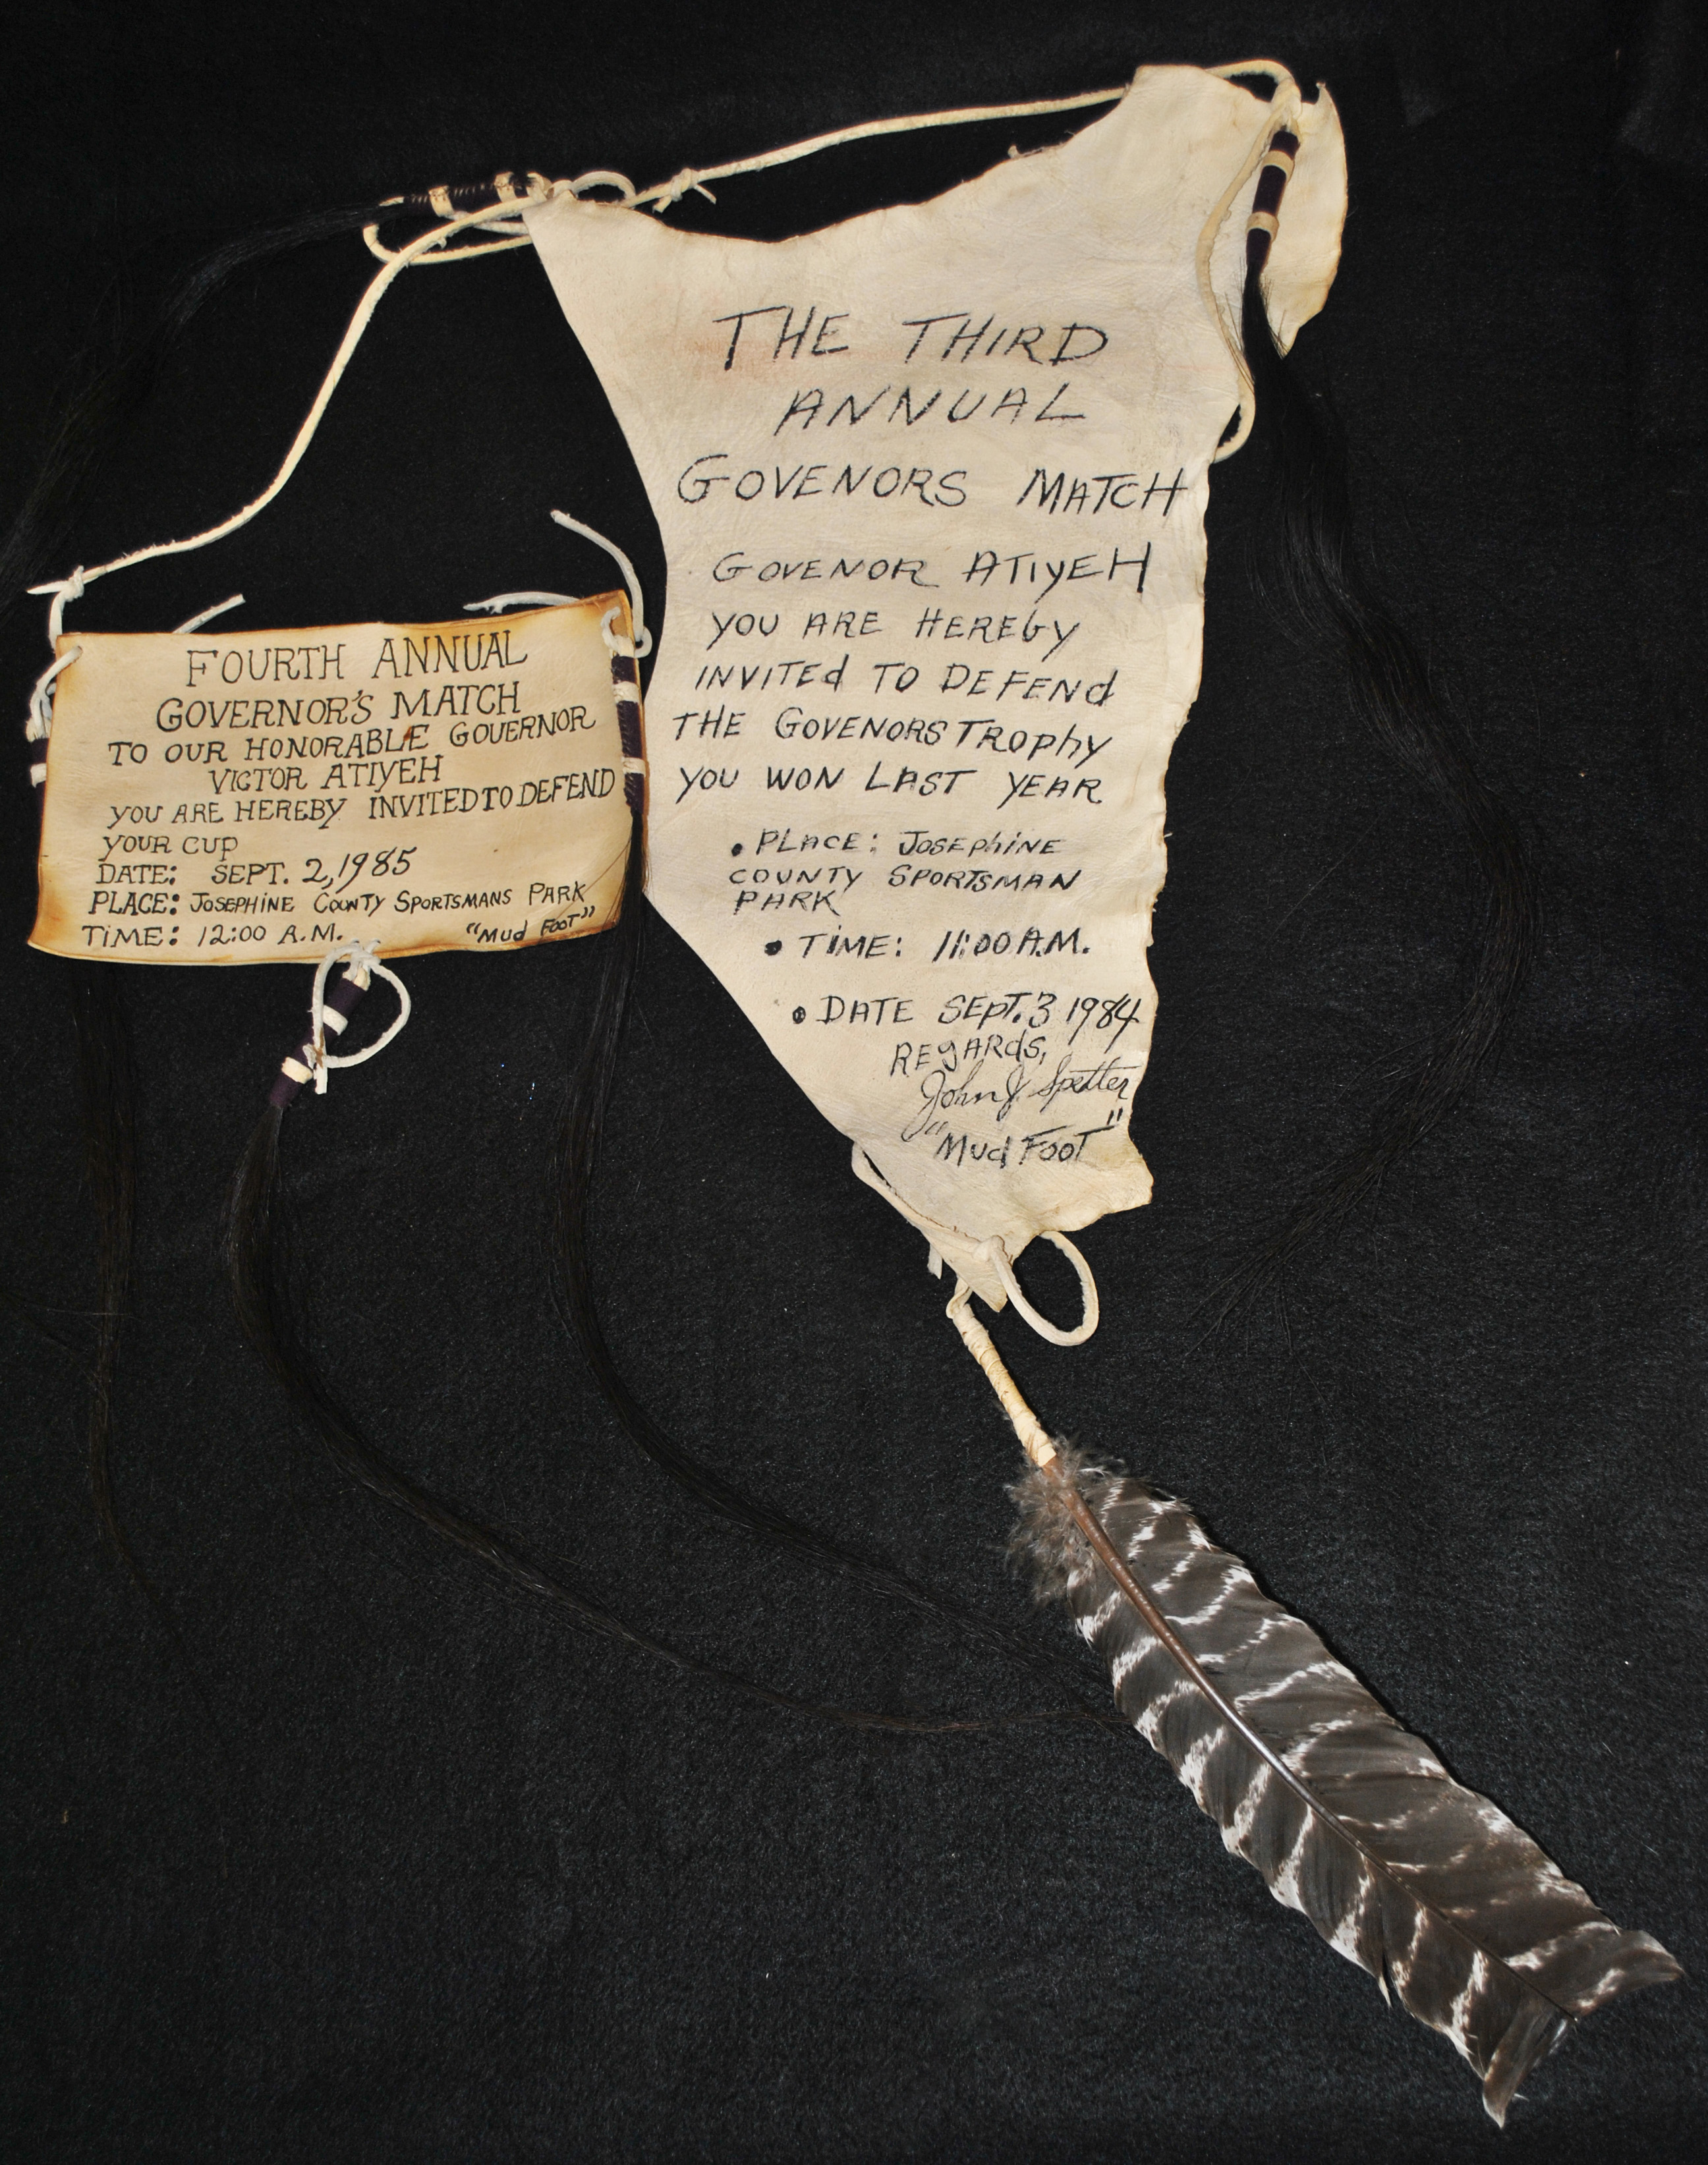 THE THIRD
ANNUAL
GOVENORS MATCH
GOVENOR ATIYEH
YOU ARE HEREBY
INVITEd TO DEFENd
THE GOVENORS TROphy
YOU WON LAST YEAR
• PLACE: JOSEPhiNE
COUNTY SPORTSMAN
PARK
• TiME: 11:00 A.M.
• DATE SEpT. 3 1984
REgARdS,
John J. Spetter
"Mud FOOT"
FOURTH ANNUAL
GOVERNOR'S MATCH
TO OUR HONORABLE GOVERNOR
VICTOR ATIYEH
YOU ARE HEREBY INVITED TO DEFEND
YOUR CUP
DATE: SEPT. 2, 1985
PLACE: JOSEPHINE COUNTY SPORTSMANS PARK
TiME: 12:00 A.M. "Mud FOOT"